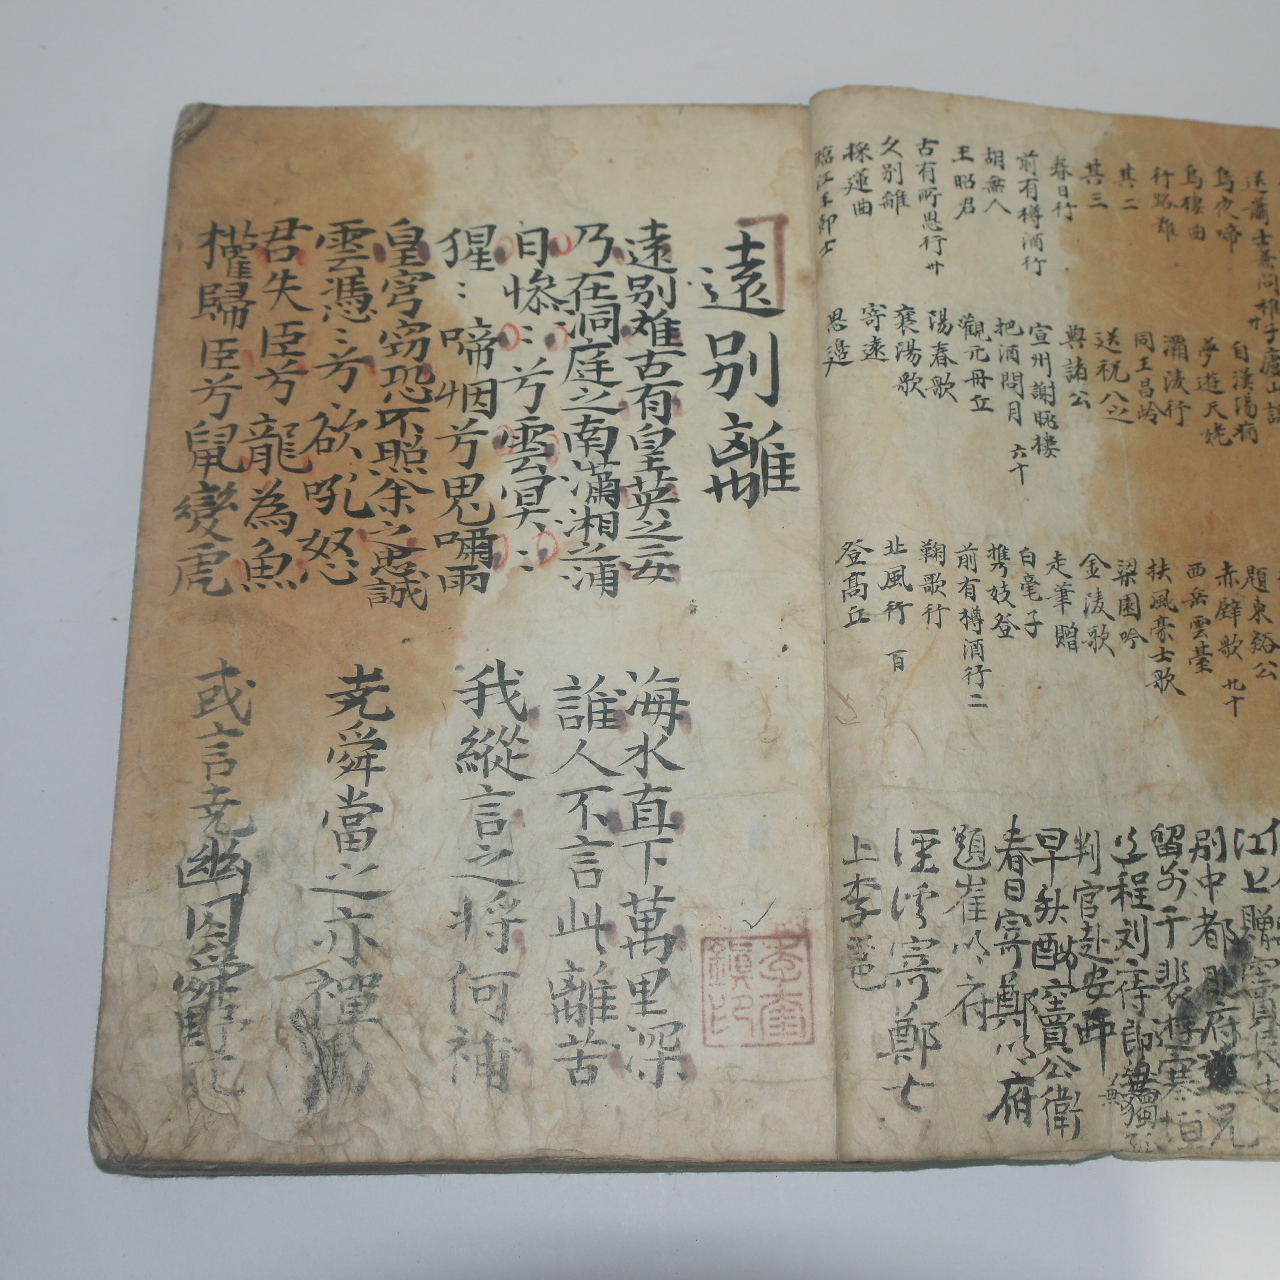 烏夜啼
烏棲曲
行路難
其二
其三
春日行
前有樽酒行
胡無人
王昭君
古有所思行 卅
久別離
採蓮曲
臨江王節士
廬山謠
自漢陽病
夢遊天姥
灞陵行
同王昌齡
送祝八之
與諸公
宣州謝眺樓
把酒問月 六十
觀元丹丘
陽春歌
襄陽歌
寄遠
思邊
題東谿公
赤壁歌 九十
西岳雲臺
扶風豪士歌
梁園吟
金陵歌
走筆贈
白毫子
携妓登
前有樽酒行二
鞠歌行
北風行 百
登高丘
江上贈竇長史
別中都明府兄
判官赴安西
早秋酬竇公衡
春日寄鄭明府
題崔明府
涇溪寄鄭七
上李邕
遠別離
遠別離古有皇英之二女 海水直下萬里深
乃在洞庭之南瀟湘之浦 誰人不言此離苦
日慘〻兮雲冥〻
猩〻啼烟兮鬼嘯雨 我縱言之將何補
皇穹窃恐不照余之忠誠
雲憑〻兮欲吼怒 堯舜當之亦禪禹
君失臣兮龍為魚
權歸臣兮鼠變虎 或言堯幽囚舜野死